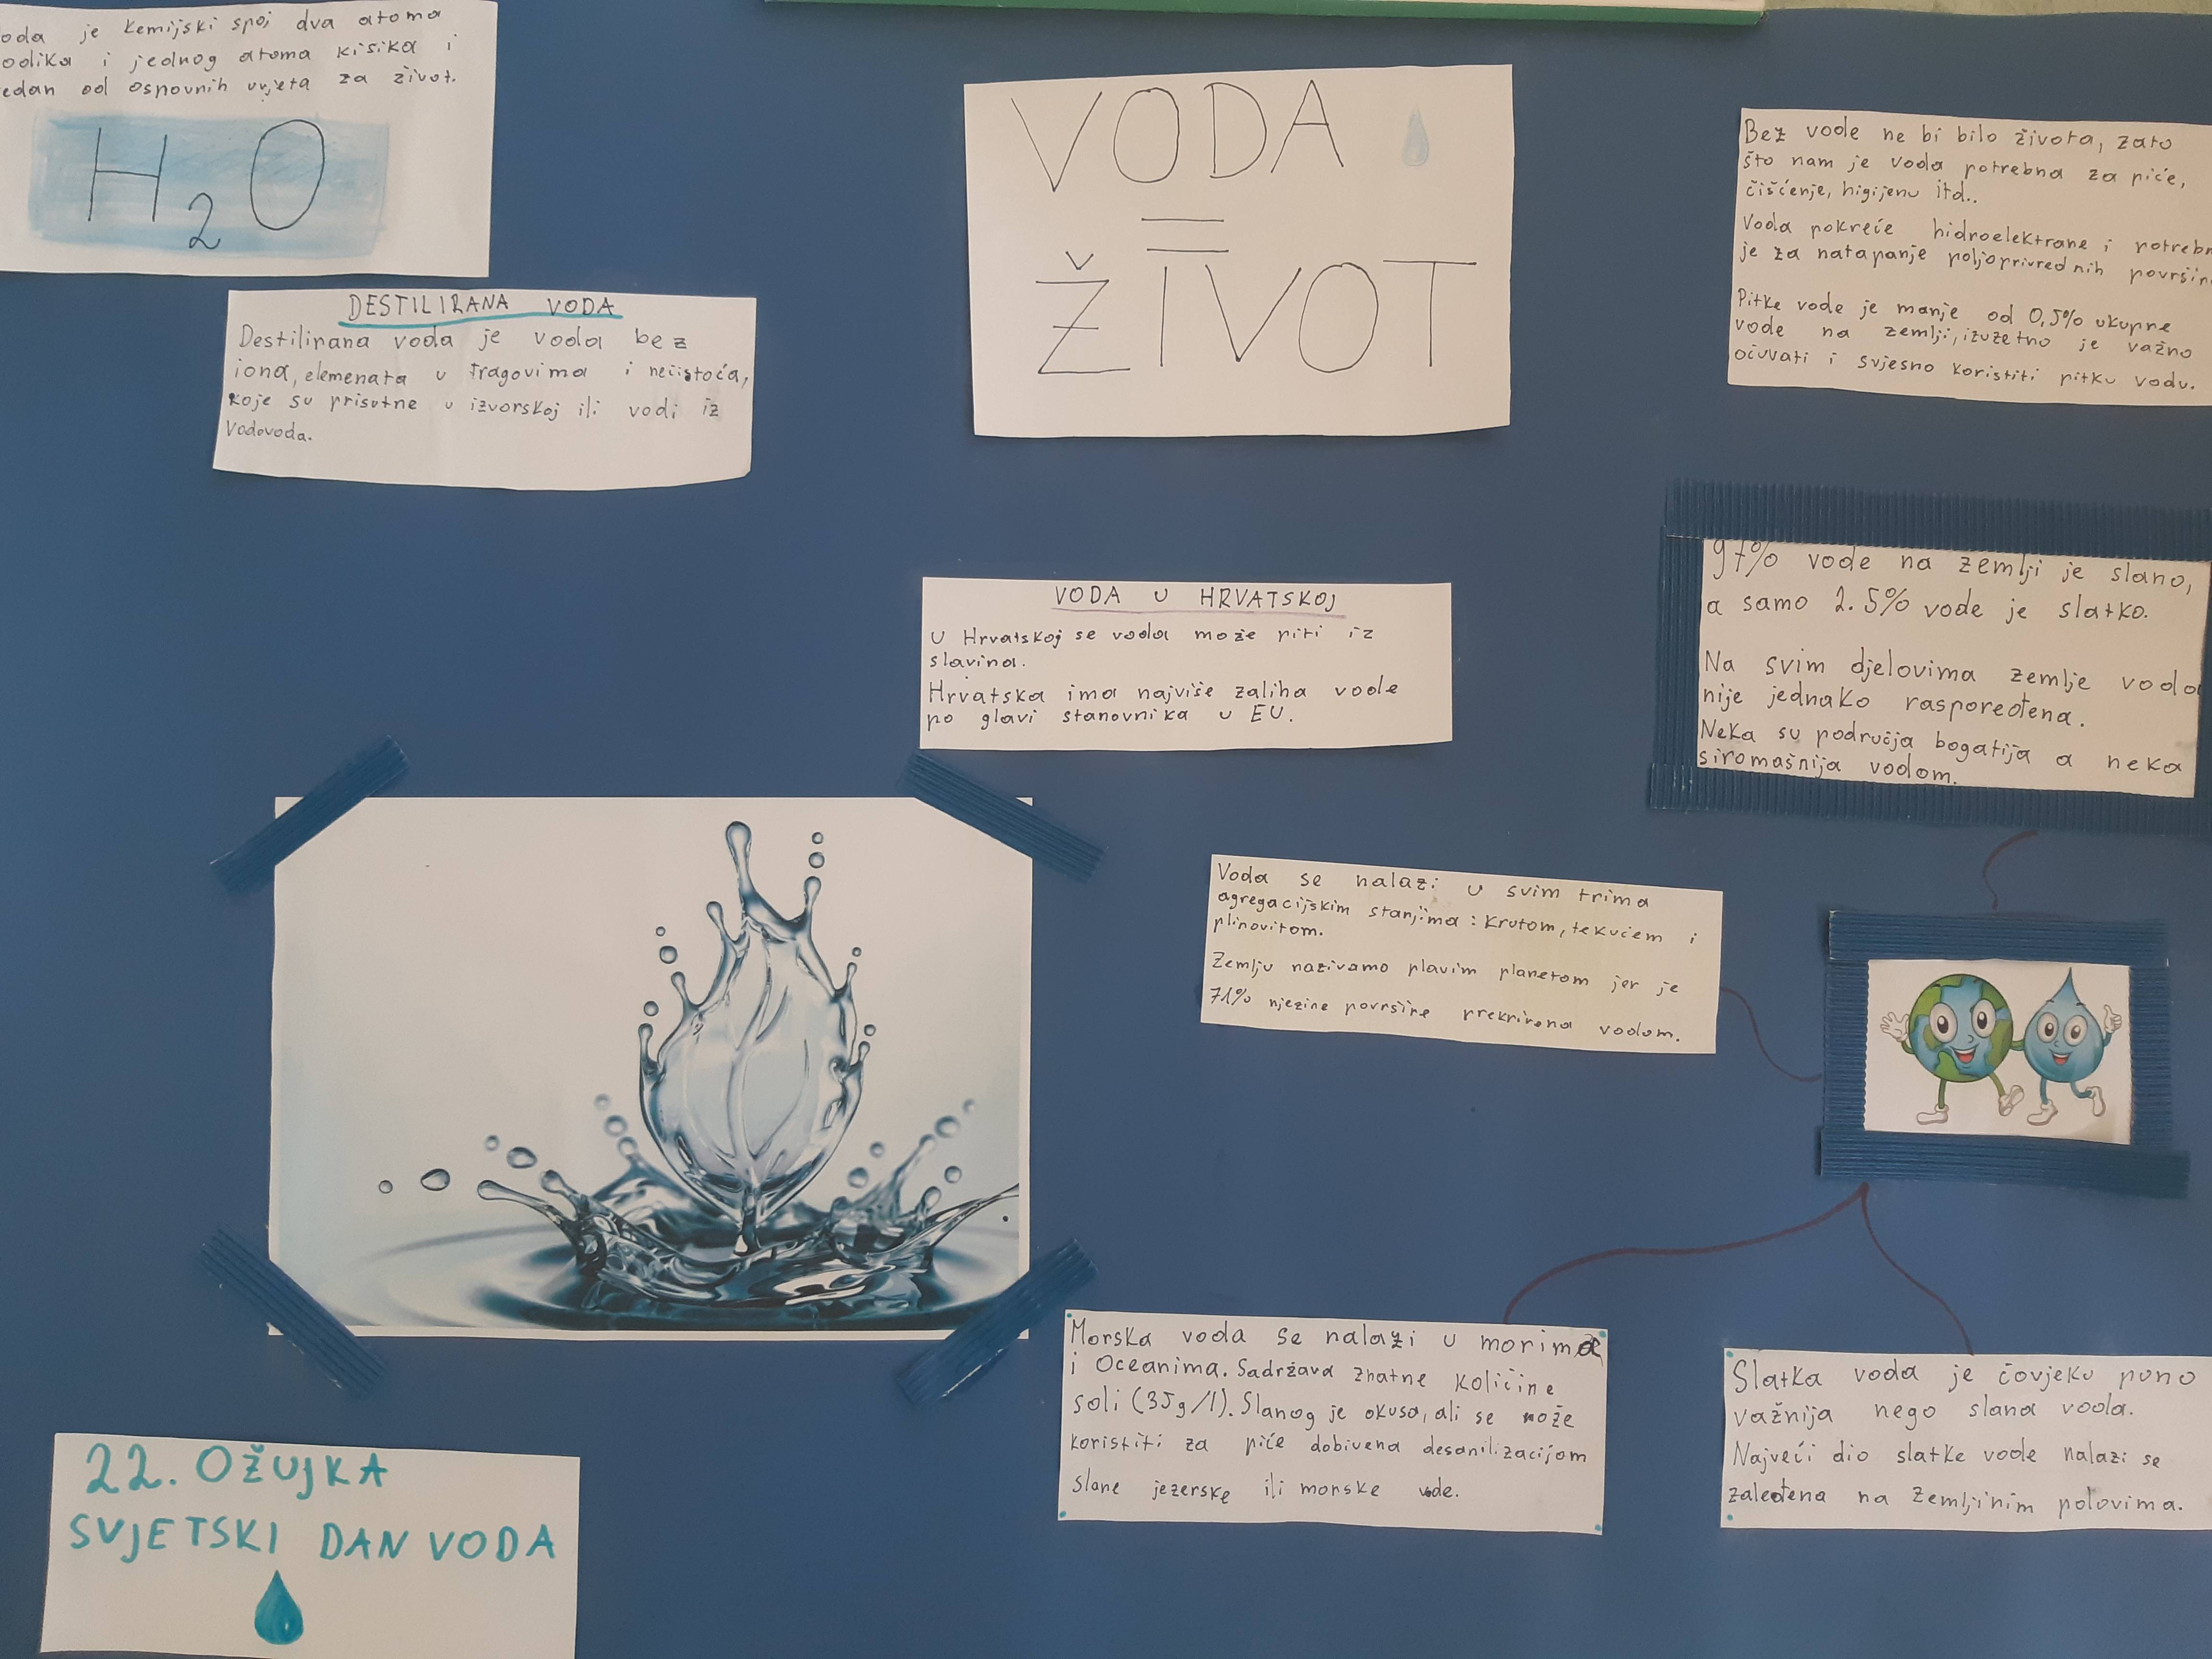 oda je kemijski spoj dva atoma
odika i jednog atoma kisika i
edan od osnovnih uvjeta za život.
H2O
DESTILIRANA VODA
Destilirana voda je voda bez
iona, elemenata u tragovima i nečistoća,
koje su prisutne u izvorskoj ili vodi iz
vodovoda.
VODA
=
ŽIVOT
Bez vode ne bi bilo života, zato
što nam je voda potrebna za piće,
čišćenje, higijenu itd..
Voda pokreće hidroelektrane i potrebn
je za natapanje poljoprivrednih površin
Pitke vode je manje od 0,5% ukupne
vode na zemlji, izuzetno je važno
očuvati i svjesno koristiti pitku vodu.
VODA U HRVATSKOJ
U Hrvatskoj se voda može piti iz
slavina.
Hrvatska ima najviše zaliha vode
po glavi stanovnika u EU.
97% vode na zemlji je slano,
a samo 2.5% vode je slatko.
Na svim djelovima zemlje voda
nije jednako raspoređena.
Neka su područja bogatija a neka
siromašnija vodom.
Voda se nalazi u svim trima
agregacijskim stanjima: krutom, tekućem i
plinovitom.
Zemlju nazivamo plavim planetom jer je
71% njezine površine prekrivena vodom.
Morska voda se nalazi u morima
i Oceanima. Sadržava znatne količine
soli (35g/l). Slanog je okusa, ali se može
koristiti za piće dobivena desanilizacijom
slane jezerske ili morske vode.
Slatka voda je čovjeku puno
važnija nego slana voda.
Najveći dio slatke vode nalazi se
zaleđena na Zemljinim polovima.
22. OŽUJKA
SVJETSKI DAN VODA